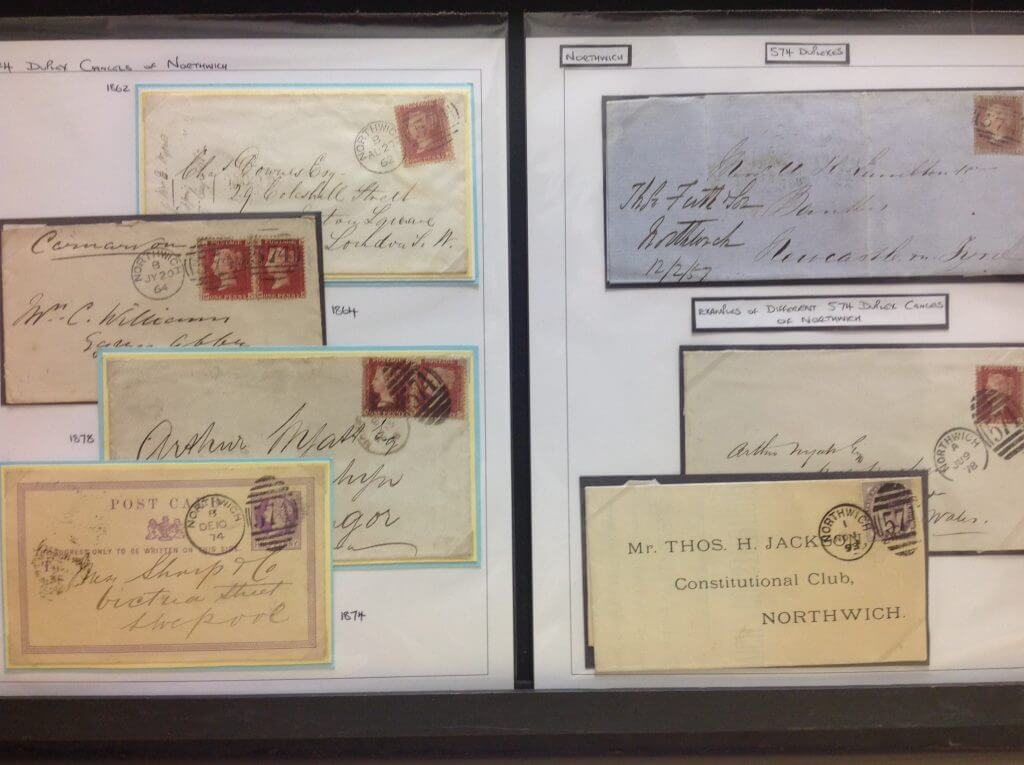 DUPLEX CANCELS OF NORTHWICH
1862
NORTHWICH
B
AU 27
62
Chas Downes Esq.
29 Coleshill Street
Square
London S. W.
Carnarvon
NORTHWICH
B
JY 20
64
ONE PENNY
1864
Mrs C. Williams
1878
574
Arthur Wyatt Esq
POST CARD
NORTHWICH
B
DE 10
74
ADDRESS ONLY TO BE WRITTEN ON THIS SIDE
Sharp & Co
Victria Street
Liverpool
1874
NORTHWICH
574 DUPLEXES
Thos Firth & Son
Northwich
12/2/57
Newcastle on Tyne
EXAMPLES OF DIFFERENT 574 DUPLEX CANCELS
OF NORTHWICH
NORTHWICH
A
JU 9
78
57
Arthur Wyatt Esq
Wales.
NORTHWICH
1
93
57
Mr. THOS. H. JACK
Constitutional Club,
NORTHWICH.